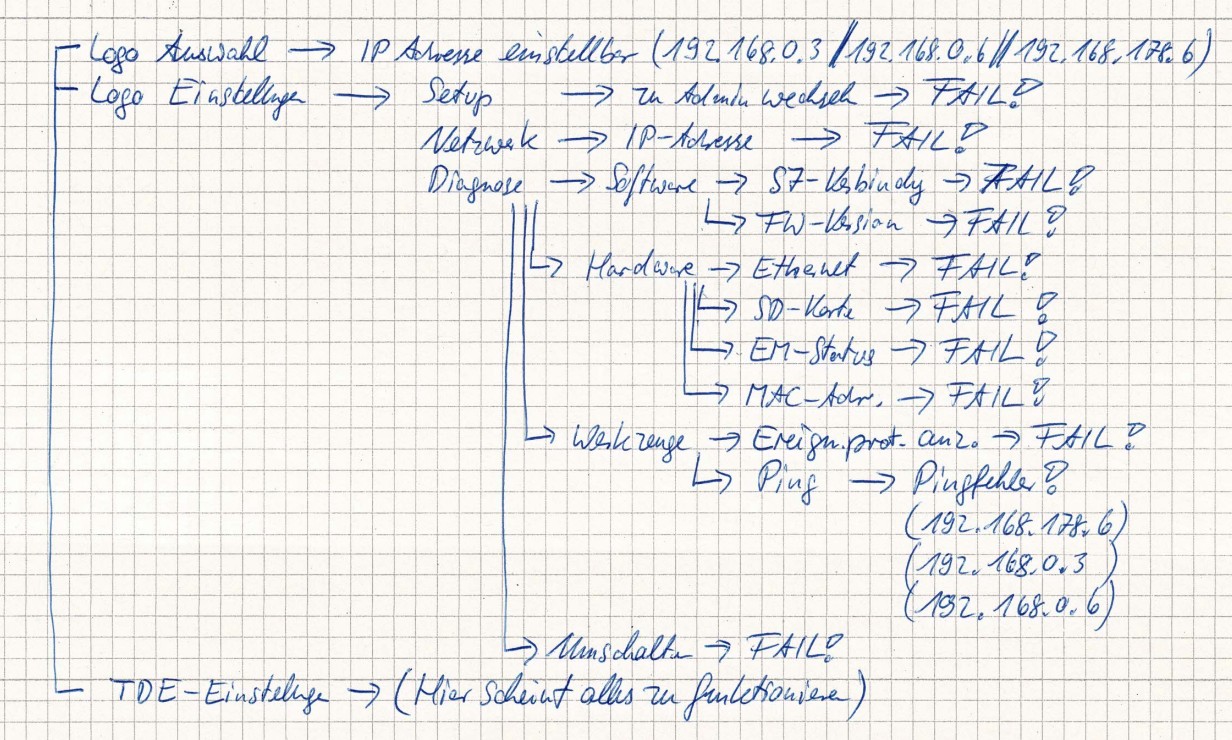 Logo Auswahl → IP Adresse einstellbar (192.168.0.3 // 192.168.0.6 // 192.168.178.6)
Logo Einstellungen → Setup → zu Admin wechseln → FAIL!
Netzwerk → IP-Adresse → FAIL!
Diagnose → Software → S7-Verbindung → FAIL!
↳ FW-Version → FAIL!
↳ Hardware → Ethernet → FAIL!
↳ SD-Karte → FAIL!
↳ EM-Status → FAIL!
↳ MAC-Adr. → FAIL!
↳ Werkzeuge → Ereign.prot. anz. → FAIL!
↳ Ping → Pingfehler!
(192.168.178.6)
(192.168.0.3)
(192.168.0.6)
↳ Umschalten → FAIL!
TDE-Einstellunge → (Hier scheint alles zu funktionieren)